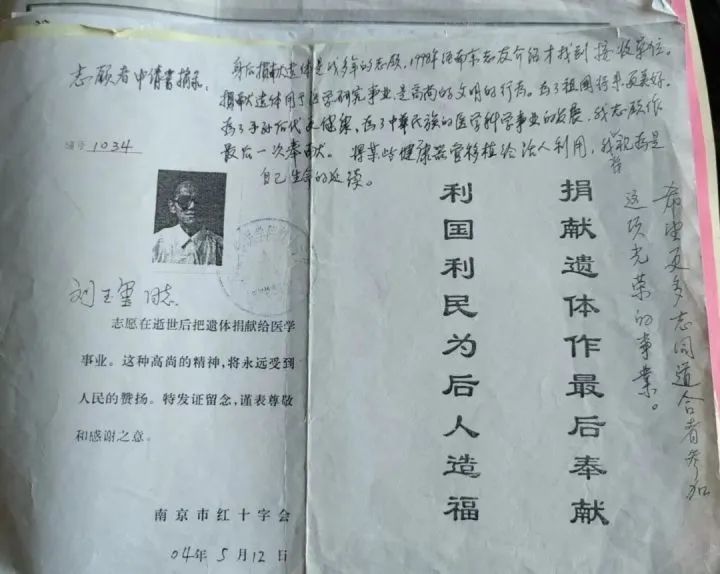 志愿者申请书摘录：
身后捐献遗体是我多年的志愿，1998年经南京志友介绍才找到接收单位。
捐献遗体用于医学研究事业，是高尚的文明的行为。为了祖国将来更美好，
为了子孙后代更健康，为了中华民族的医学科学事业的发展，我志愿作
最后一次奉献。将某些健康器官移植给活人利用，我视为是
自己生命的延续。
编号 1034
刘玉 同志
志愿在逝世后把遗体捐献给医学
事业。这种高尚的精神，将永远受到
人民的赞扬。特发证留念，谨表尊敬
和感谢之意。
南京市红十字会
04年5月12日
捐献遗体作最后奉献
利国利民为后人造福
希望更多志同道合者参加
这项光荣的事业。